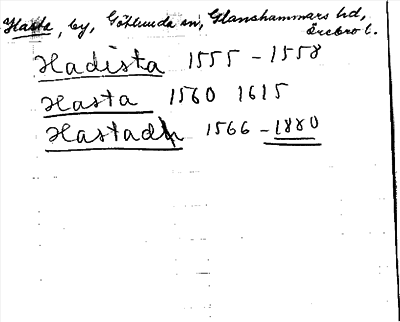 Hasta, by, Götlunda sn, Glanshammars hd,
Örebro l.
Hadista 1555 - 1558
Hasta 1560 1615
Hastadh 1566 - 1880